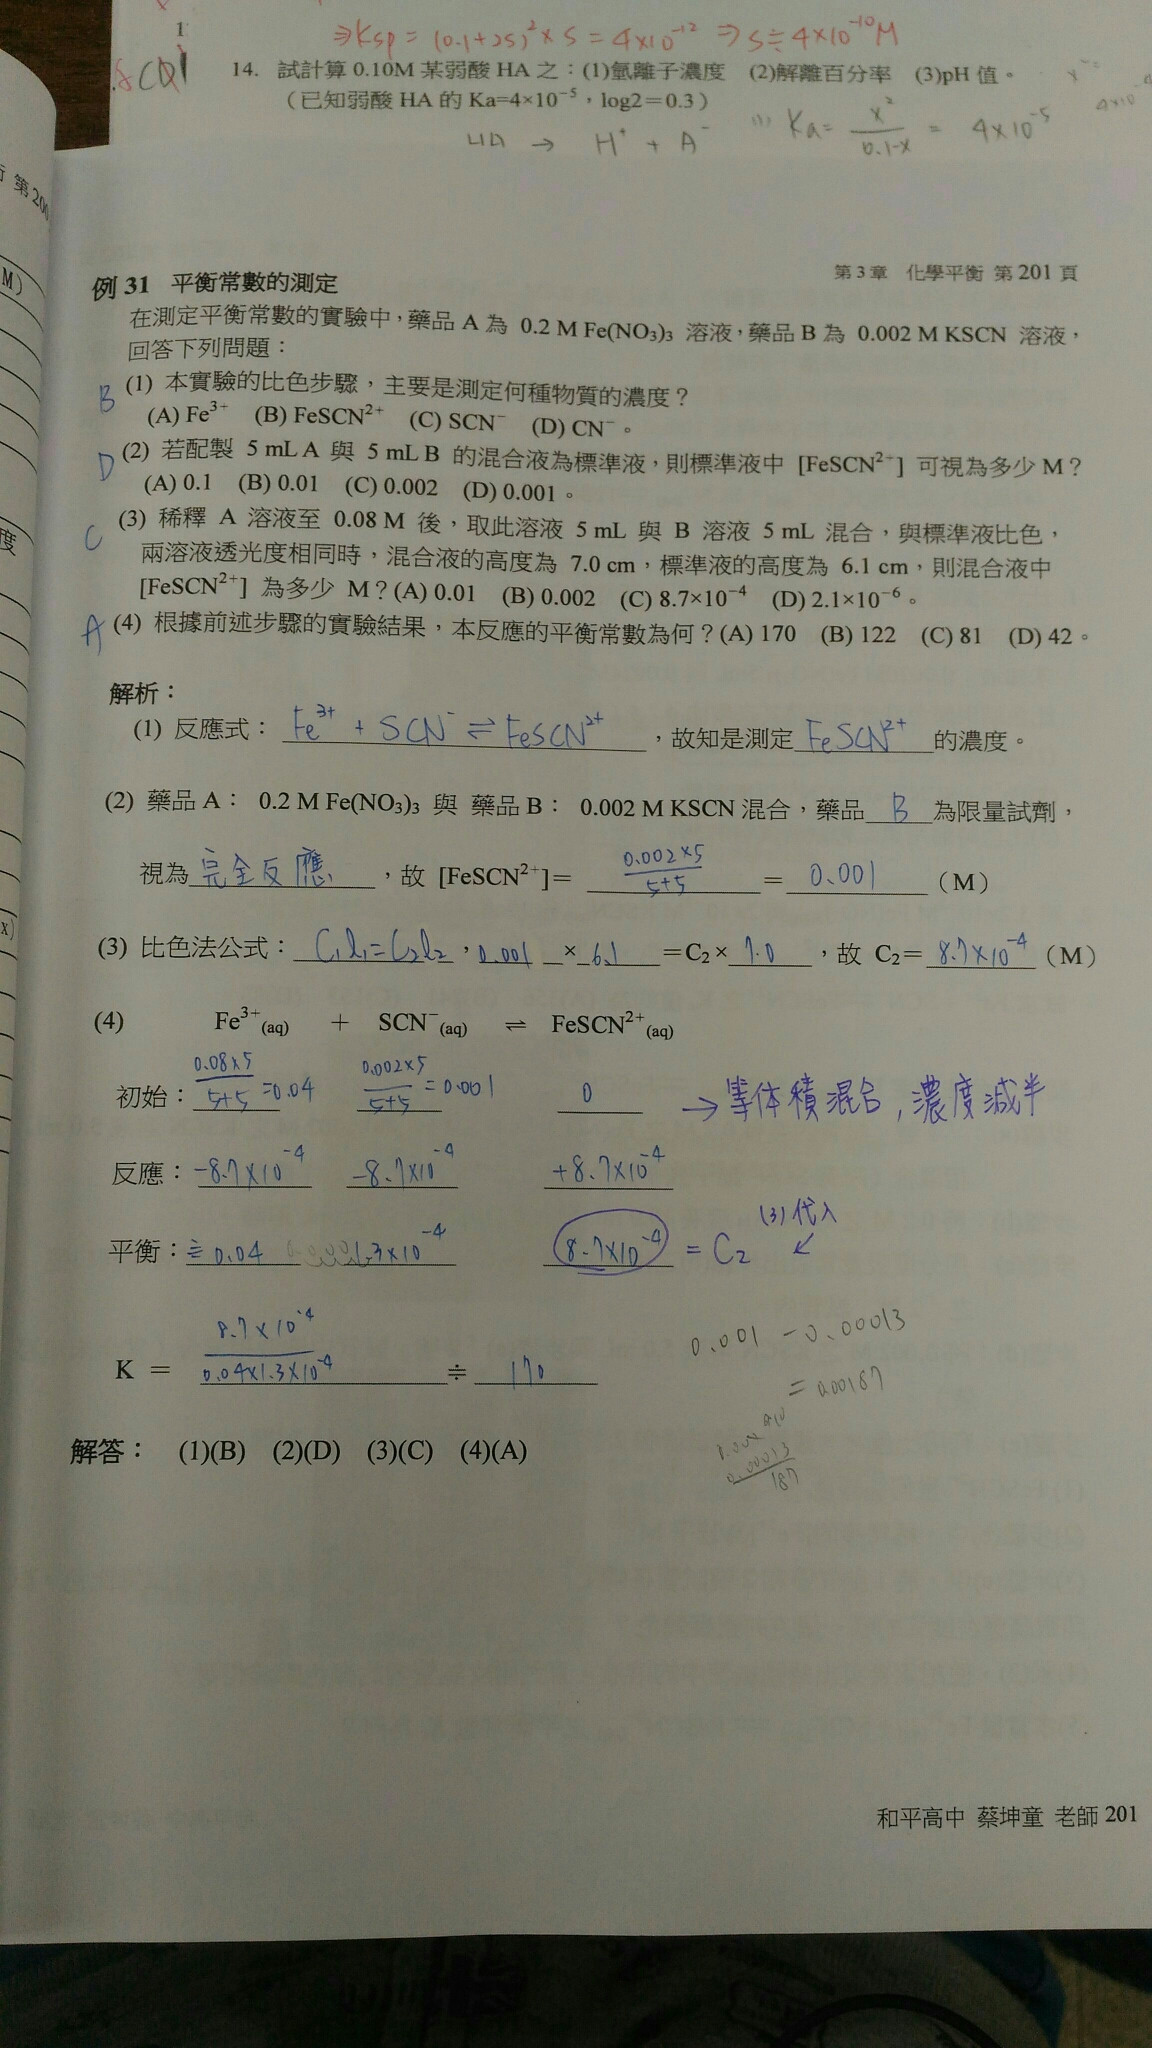 ⇒Ksp = (0.1+2S)²×S = 4×10⁻¹² ⇒ S≒4×10⁻¹⁰M
14. 試計算 0.10M 某弱酸 HA 之:(1)氫離子濃度 (2)解離百分率 (3)pH 值。
(已知弱酸 HA 的 Ka=4×10⁻⁵,log2=0.3)
HA → H⁺ + A⁻ (1) Ka= x²/0.1-x = 4×10⁻⁵
第 200
M)
度
x)
第 3 章 化學平衡 第 201 頁
例 31 平衡常數的測定
在測定平衡常數的實驗中,藥品 A 為 0.2 M Fe(NO₃)₃ 溶液,藥品 B 為 0.002 M KSCN 溶液,
回答下列問題:
B (1) 本實驗的比色步驟,主要是測定何種物質的濃度?
(A) Fe³⁺ (B) FeSCN²⁺ (C) SCN⁻ (D) CN⁻。
D (2) 若配製 5 mL A 與 5 mL B 的混合液為標準液,則標準液中 [FeSCN²⁺] 可視為多少 M?
(A) 0.1 (B) 0.01 (C) 0.002 (D) 0.001。
C (3) 稀釋 A 溶液至 0.08 M 後,取此溶液 5 mL 與 B 溶液 5 mL 混合,與標準液比色,
兩溶液透光度相同時,混合液的高度為 7.0 cm,標準液的高度為 6.1 cm,則混合液中
[FeSCN²⁺] 為多少 M?(A) 0.01 (B) 0.002 (C) 8.7×10⁻⁴ (D) 2.1×10⁻⁶。
A (4) 根據前述步驟的實驗結果,本反應的平衡常數為何?(A) 170 (B) 122 (C) 81 (D) 42。
解析:
(1) 反應式: Fe³⁺ + SCN⁻ ⇌ FeSCN²⁺ ,故知是測定 FeSCN²⁺ 的濃度。
(2) 藥品 A: 0.2 M Fe(NO₃)₃ 與 藥品 B: 0.002 M KSCN 混合,藥品 B 為限量試劑,
視為 完全反應 ,故 [FeSCN²⁺]= 0.002×5/5+5 = 0.001 (M)
(3) 比色法公式: C₁l₁=C₂l₂ , 0.001 × 6.1 =C₂× 7.0 ,故 C₂= 8.7×10⁻⁴ (M)
(4) Fe³⁺(aq) + SCN⁻(aq) ⇌ FeSCN²⁺(aq)
初始: 0.08×5/5+5 =0.04 0.002×5/5+5 =0.001 0 → 等体積混合,濃度減半
反應: -8.7×10⁻⁴ -8.7×10⁻⁴ +8.7×10⁻⁴
平衡: ≒0.04 1.3×10⁻⁴ 8.7×10⁻⁴ = C₂ (3)代入
K = 8.7×10⁻⁴/0.04×1.3×10⁻⁴ ≑ 170
0.001 - 0.00013
= 0.00187
0.00013
187
解答: (1)(B) (2)(D) (3)(C) (4)(A)
和平高中 蔡坤童 老師 201